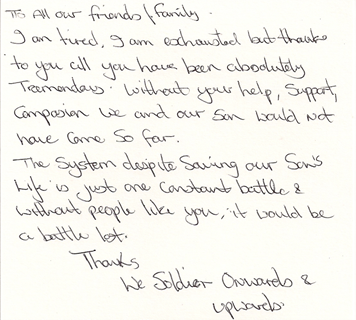 To All our friends/family.
I am tired, I am exhausted but thanks
to you all you have been absolutely
Tremendous. Without your help, Support,
Compassion we and our Son would not
have Come So far.
The System despite Saving our Son's
Life is just one Constant battle &
without people like you, it would be
a battle lost.
Thanks
We Soldier Onwards &
upwards.